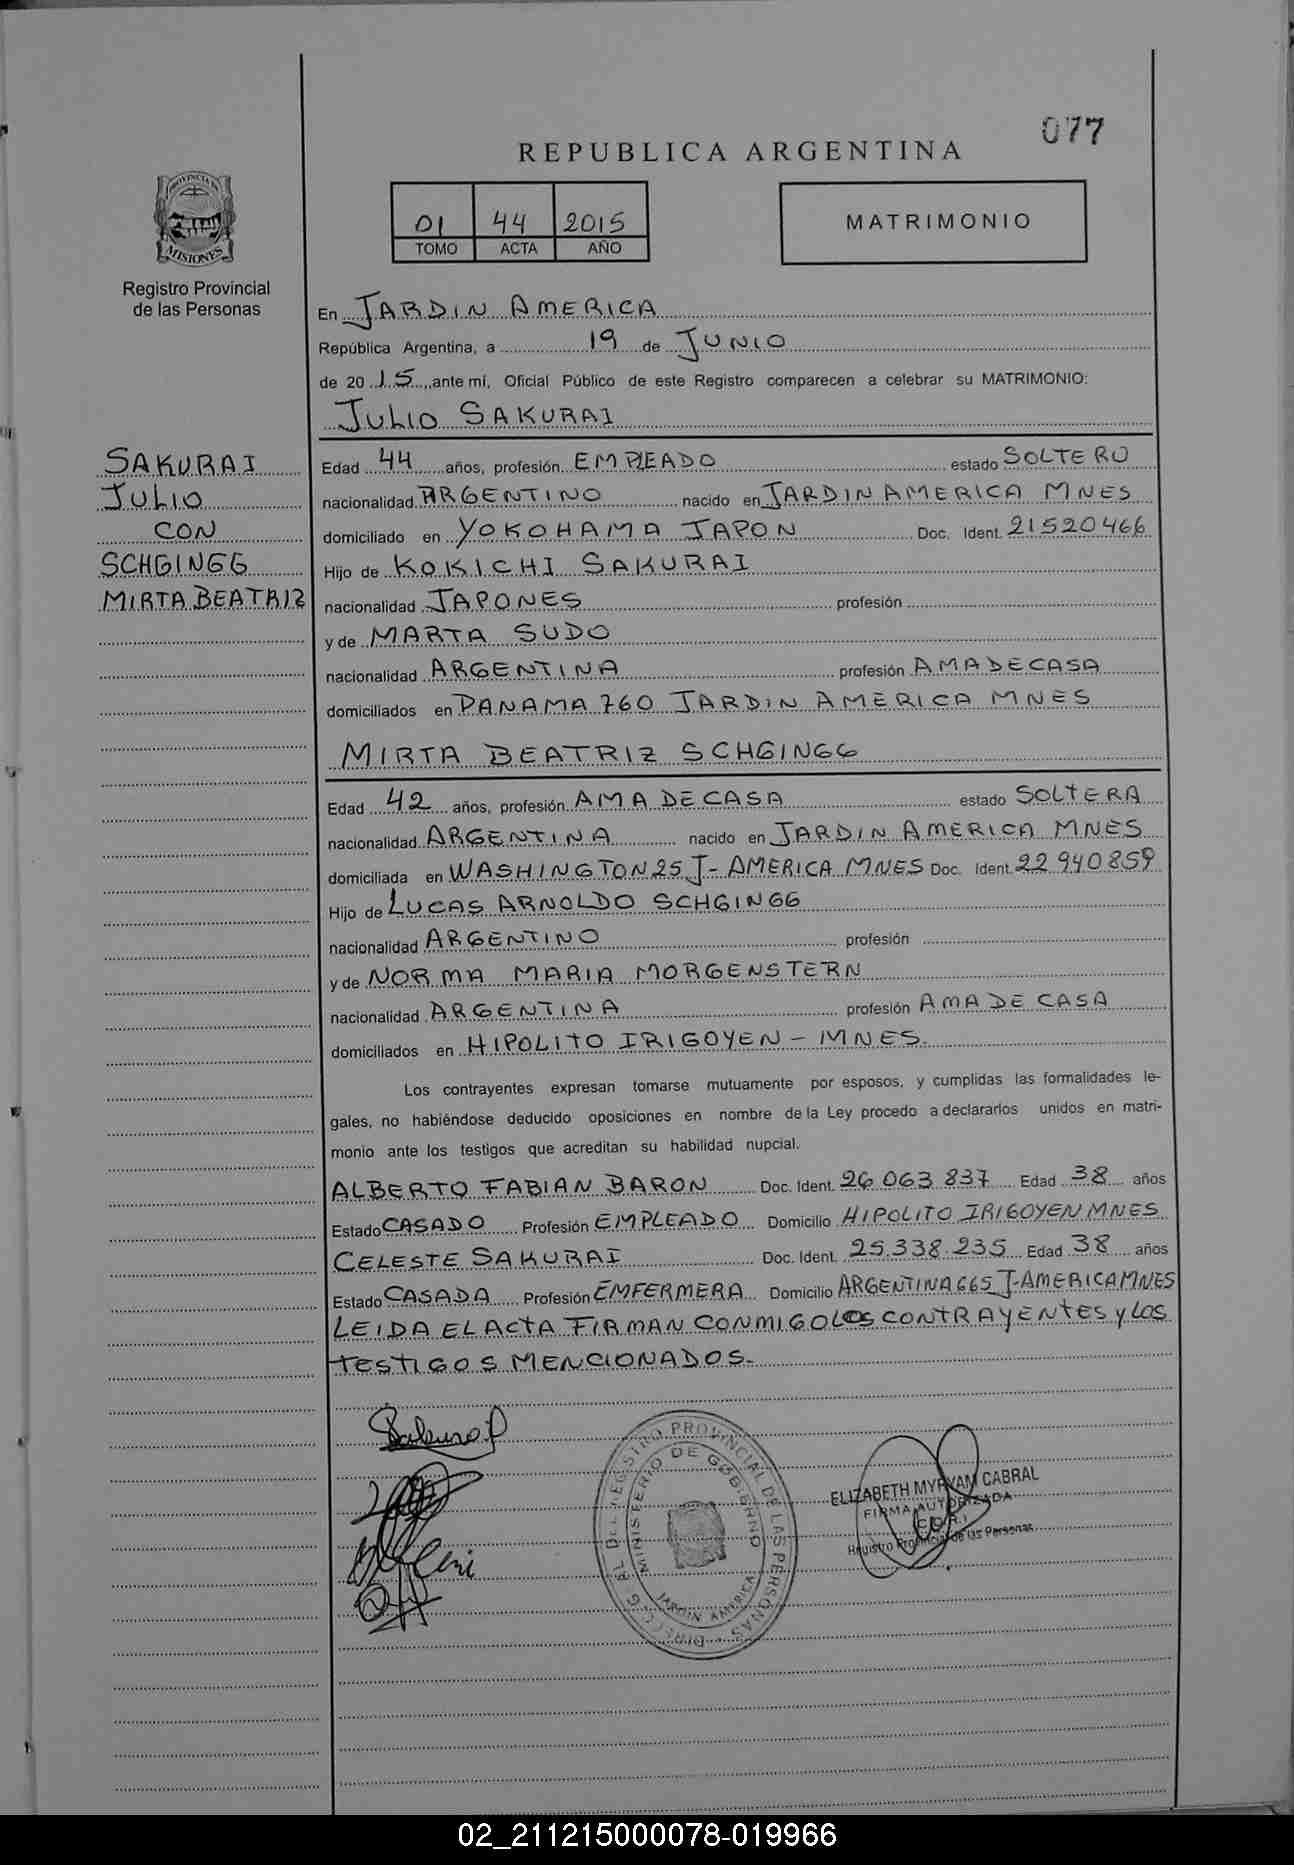 077
REPUBLICA ARGENTINA
PROVINCIA DE
MISIONES
Registro Provincial
de las Personas
01 44 2015
TOMO ACTA AÑO
MATRIMONIO
En JARDIN AMERICA
República Argentina, a 19 de JUNIO
de 2015, ante mí, Oficial Público de este Registro comparecen a celebrar su MATRIMONIO:
JULIO SAKURAI
SAKURAI
JULIO
CON
SCHGINGG
MIRTA BEATRIZ
Edad 44 años, profesión EMPLEADO estado SOLTERO
nacionalidad ARGENTINO nacido en JARDIN AMERICA MNES
domiciliado en YOKOHAMA JAPON Doc. Ident. 21520466
Hijo de KOKICHI SAKURAI
nacionalidad JAPONES profesión
y de MARTA SUDO
nacionalidad ARGENTINA profesión AMA DE CASA
domiciliados en PANAMA 760 JARDIN AMERICA MNES
MIRTA BEATRIZ SCHGINGG
Edad 42 años, profesión AMA DE CASA estado SOLTERA
nacionalidad ARGENTINA nacido en JARDIN AMERICA MNES
domiciliada en WASHINGTON 25 J- AMERICA MNES Doc. Ident. 22 940859
Hijo de LUCAS ARNOLDO SCHGINGG
nacionalidad ARGENTINO profesión
y de NORMA MARIA MORGENSTERN
nacionalidad ARGENTINA profesión AMA DE CASA
domiciliados en HIPOLITO IRIGOYEN - MNES.
Los contrayentes expresan tomarse mutuamente por esposos, y cumplidas las formalidades le-
gales, no habiéndose deducido oposiciones en nombre de la Ley procedo a declararlos unidos en matri-
monio ante los testigos que acreditan su habilidad nupcial.
ALBERTO FABIAN BARON Doc. Ident. 26 063 837 Edad 38 años
Estado CASADO Profesión EMPLEADO Domicilio HIPOLITO IRIGOYEN MNES
CELESTE SAKURAI Doc. Ident. 25.338.235 Edad 38 años
Estado CASADA Profesión EMFERMERA Domicilio ARGENTINA 665 J-AMERICA MNES
LEIDA EL ACTA FIRMAN CONMIGO LOS CONTRAYENTES Y LOS
TESTIGOS MENCIONADOS.
DIRECC. GRAL. DEL REGISTRO PROVINCIAL DE LAS PERSONAS
MINISTERIO DE GOBIERNO
JARDIN AMERICA
ELIZABETH MYRYAM CABRAL
FIRMA AUTORIZADA
Registro Provincial de las Personas
02_211215000078-019966